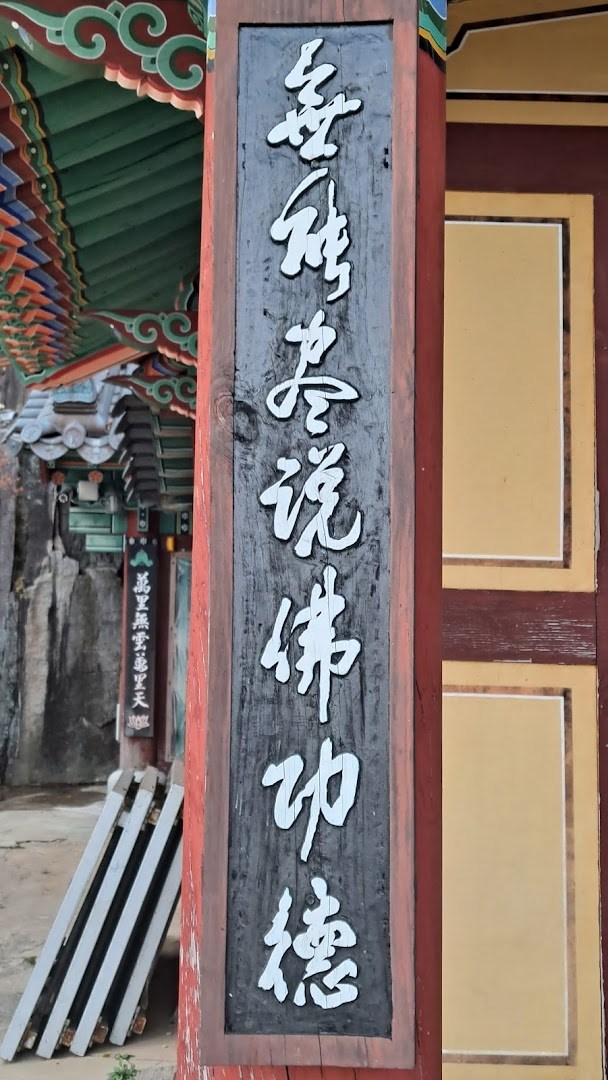 無能盡說佛功德
萬里無雲萬里天